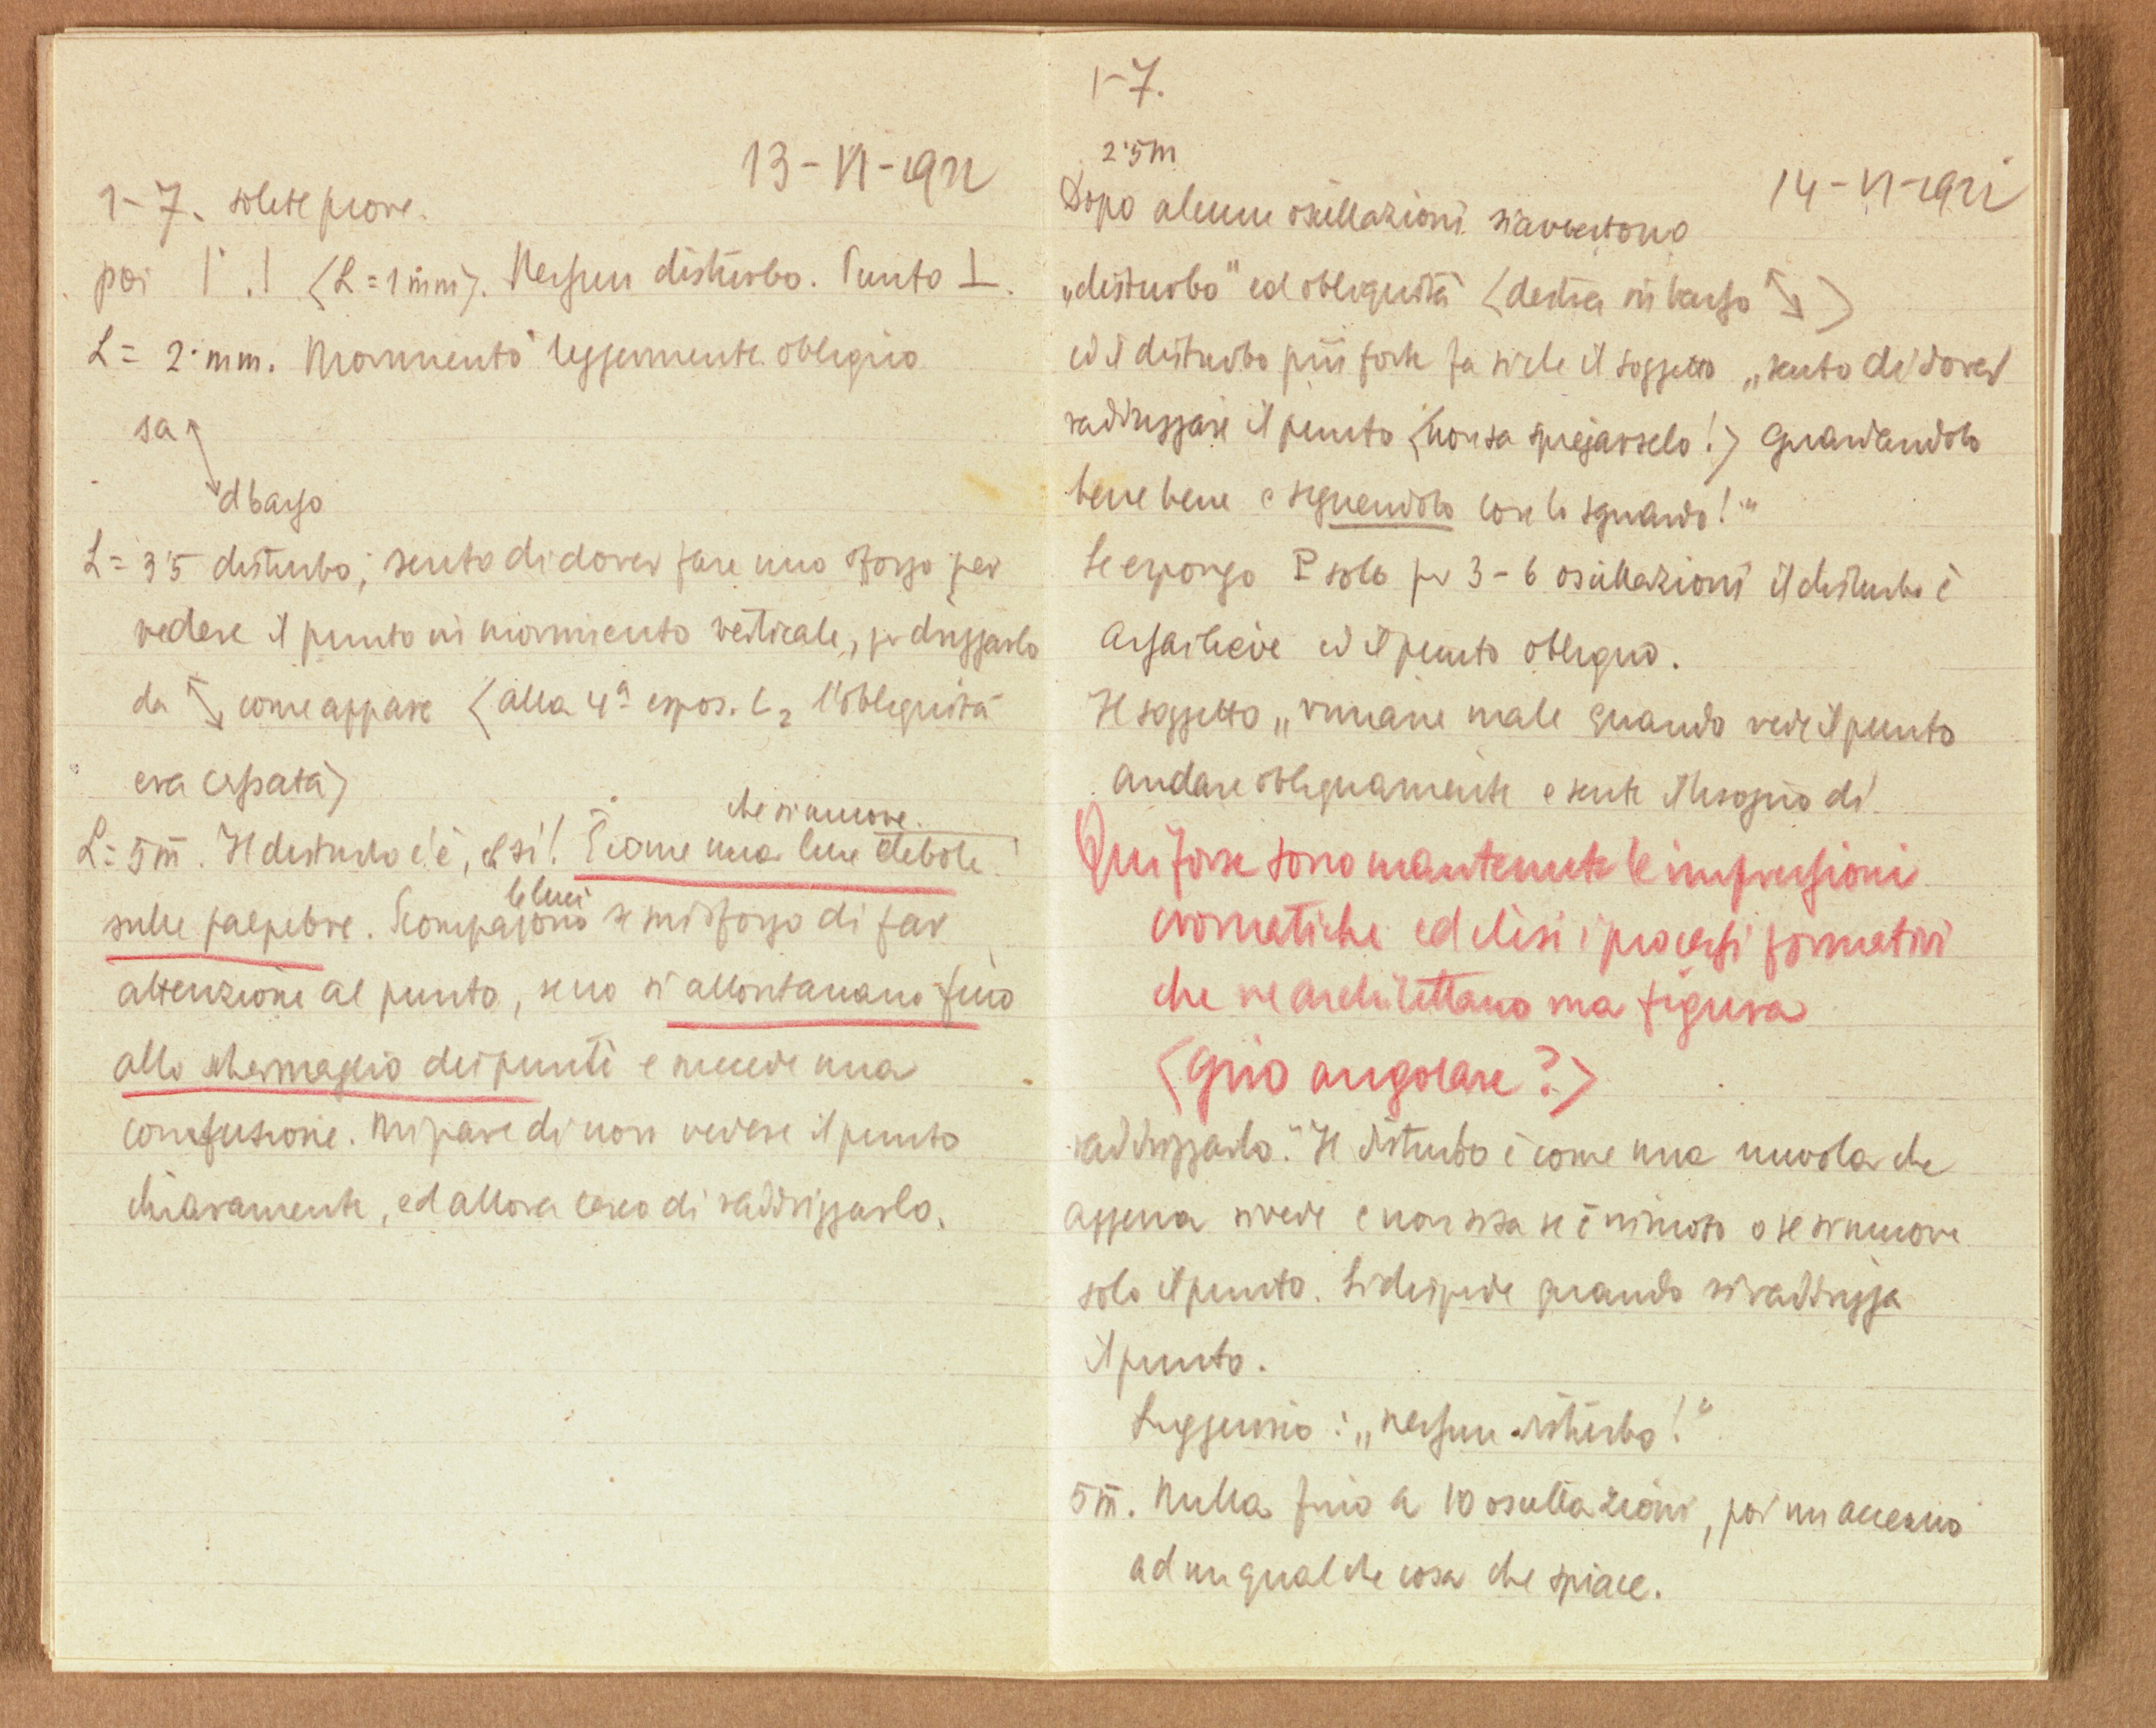 13-VI-1922
1-7. solite prove.
poi |˙ .| (L=1mm). Nessun disturbo. Punto ⊥.
L= 2·mm. Movimento leggermente obliquo
sa
d basso
L= 3'5 disturbo; sento di dover fare uno sforzo per
vedere il punto in movimento verticale, per drizzarlo
da ↖↘ come appare (alla 4ª espos. L2 l'obliquità
era cessata)
che si muove.
L= 5m. Il disturbo c'è, eh sì! È come una luce debole
le luci
sulle palpebre. Scompajono se mi sforzo di far
attenzione al punto, se no si allontanano fino
allo schermaglio dei punti e succede una
confusione. Mi pare di non vedere il punto
chiaramente, ed allora cerco di raddrizzarlo.
1-7.
2'5m
14-VI-1922
Dopo alcune oscillazioni si avvertono
„disturbo" ed obliquità (destra in basso ↖↘)
ed il disturbo più forte fa sì che il soggetto „senta di dover
raddrizzare il punto (non sa spiegarselo!) guardandolo
bene bene e seguendolo con lo sguardo!"
Se espongo P solo per 3-6 oscillazioni il disturbo è
assai lieve ed il punto obliquo.
Il soggetto „rimane male quando vede il punto
andare obliquamente e sente il bisogno di
Qui forse sono mantenute le impressioni
cromatiche ed elisi i processi formativi
che ne architettano una figura
(giro angolare?)
raddrizzarlo." Il disturbo è come una nuvola che
appena si vede e non si sa se è in moto o se si muove
solo il punto. Si disperde quando si raddrizza
il punto.
Suggerisco: „nessun disturbo!"
5m. Nulla fino a 10 oscillazioni, poi un accenno
ad un qualche cosa che spiace.